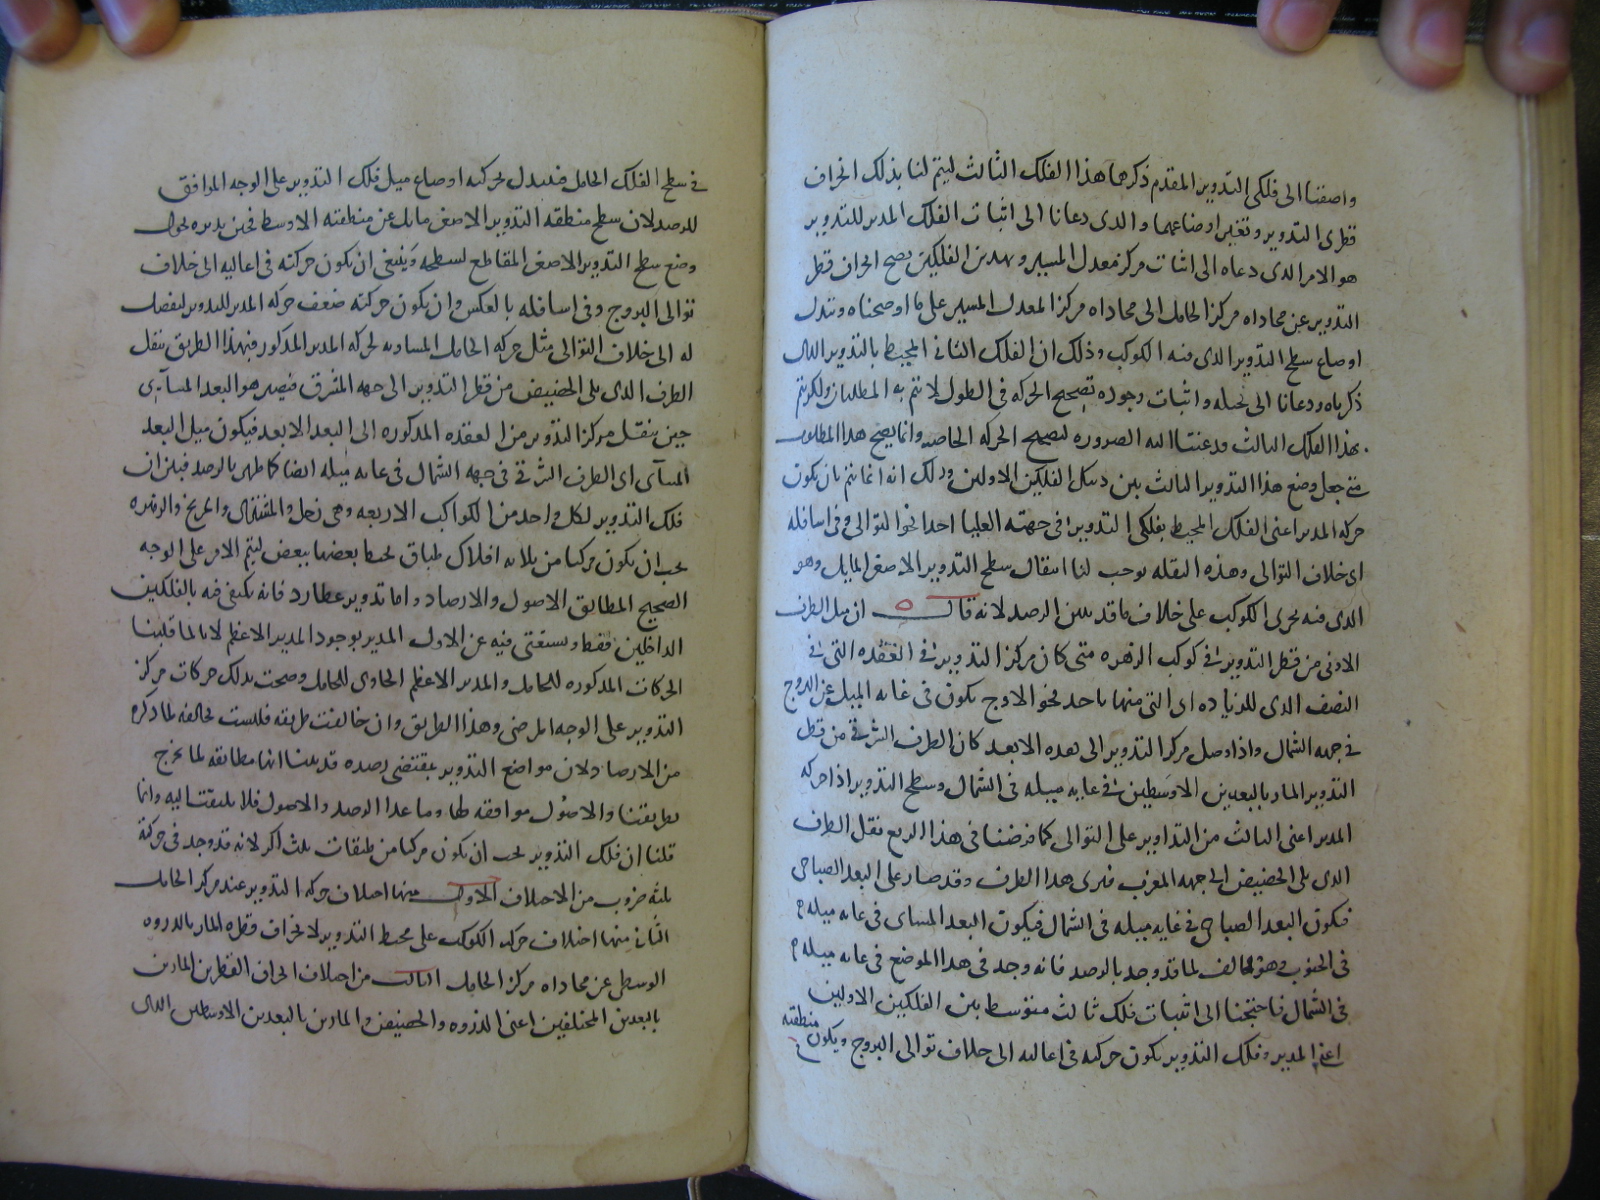 واضفنا الى فلكي التدوير المقدم ذكرهما هذا الفلك الثالث ليتم لنا بذلك انحراف
قطرى التدوير وتغير اوضاعهما والذى دعانا الى اثبات الفلك المدير للتدوير
هو الامر الذى دعاه الى اثبات مركز معدل المسير وبهذين الفلكين يصح انحراف قطر
التدوير عن محاداه مركز الحامل الى محاداه مركز المعدل المسير على ما اوضحناه وتبدل
اوضاع سطح التدوير الذى فيه الكوكب وذلك ان الفلك الثانى المحيط بالتدوير الذى
ذكرناه ودعانا الى تخيله واثبات وجوده تصحيح الحركه فى الطول لا يتم به المطلبان ولكن يتم
بهذا الفلك الثالث ودعتنا اليه الضروره لتصحيح الحركه الخاصه وانما يصح هذا المطلوب
متى جعل وضع هذا التدوير الثالث بين ذينك الفلكين الاولين وذلك انه انما يتم بان يكون
حركه المدير اعنى الفلك المحيط بفلكى التدوير فى جهته العليا اخذا نحو التوالى وفى اسافله
الى خلاف التوالى وهذه النقله توجب لنا انتقال سطح التدوير الاصغر المايل وهو
الذى فيه يجرى الكوكب على خلاف ما قد تبين الرصد لانه قال ان ميل الطرف
الادنى من قطر التدوير فى كوكب الزهره متى كان مركز التدوير فى العقده التى فى
النصف الذى للزياده اى التى منها ياخذ نحو الاوج يكون فى غايه الميل عن البروج
فى جهه الشمال واذا وصل مركز التدوير الى بعده الابعد كان الطرف الشرقى من قطر
التدوير المار بالبعدين الاوسطين فى غايه ميله فى الشمال وسطح التدوير اذا حركه
المدير اعنى الثالث من التداوير على التوالى كما فرضنا فى هذا الربع نقل الطرف
الذى يلى الحضيض الى جهه المغرب فنرى هذا الطرف وقد صار على البعد الصباحى
فيكون البعد الصباحى فى غايه ميله فى الشمال فيكون البعد المسائى فى غايه ميله
فى الجنوب وهو مخالف لما قد وجد بالرصد فانه وجد فى هذا الموضع فى غايه ميله
فى الشمال فاحتجنا الى اثبات فلك ثالث متوسط بين الفلكين الاولين
اعنى المدير وفلك التدوير يكون حركته فى اعاليه الى خلاف توالى البروج ويكون منطقته
فى سطح الفلك الحامل فتبدل بحركته اوضاع ميل فلك التدوير على الوجه الموافق
للرصد لان سطح منطقه التدوير الاصغر مايل عن منطقته الاوسط فحين يديره يحول
وضع سطح التدوير الاصغر المقاطع لسطحه وينبغى ان يكون حركته فى اعاليه الى خلاف
توالى البروج وفى اسافله بالعكس وان يكون حركته ضعف حركه المدير للتدوير ليفضل
له الى خلاف التوالى مثل حركه الحامل المساويه لحركه المدير المذكور فبهذا الطريق ينقل
الطرف الذى يلى الحضيض من قطر التدوير الى جهه المشرق فيصير هو البعد المسآئى
حين ينتقل مركز التدوير من العقده المذكوره الى البعد الابعد فيكون ميل البعد
المسآئى اى الطرف الشرقى فى جهه الشمال فى غايه ميله ايضا كما ظهر بالرصد فبين ان
فلك التدوير لكل واحد من الكواكب الاربعه وهى زحل والمشترى والمريخ والزهره
يجب ان يكون مركبا من ثلاثه افلاك طباق يحيط بعضها ببعض ليتم الامر على الوجه
الصحيح المطابق الاصول والارصاد واما تدوير عطارد فانه يكتفى فيه بالفلكين
الداخلين فقط ويستغنى فيه عن الاول المدير بوجود المدير الاعظم لانا لما قلبنا
الحركات المذكوره للحامل والمدير الاعظم الحاوى للحامل وصحت بذلك حركات مركز
التدوير على الوجه المرضى وهذا الطريق وان خالفت طريقه فليست مخالفه لما ذكره
من الارصاد لان مواضع التدوير بمقتضى رصده قد بينا انها مطابقه لما يخرج
بطريقتنا والاصول موافقه لها وما عدا الرصد والاصول فلا يلتفت اليه وانما
قلنا ان فلك التدوير يجب ان يكون مركبا من طبقات ثلث اكر لانه قد وجد فى حركته
ثلثه ضروب من الاختلاف الاول منها اختلاف حركه التدوير عند مركز الحامل
الثانى منها اختلاف حركه الكوكب على محيط التدوير لانحراف قطره المار بالذروه
الوسطى عن محاداه مركز الحامل الثالث من اختلاف انحراف القطرين المارين
بالبعدين المختلفين اعنى الذروه والحضيض والمارين بالبعدين الاوسطين الذى